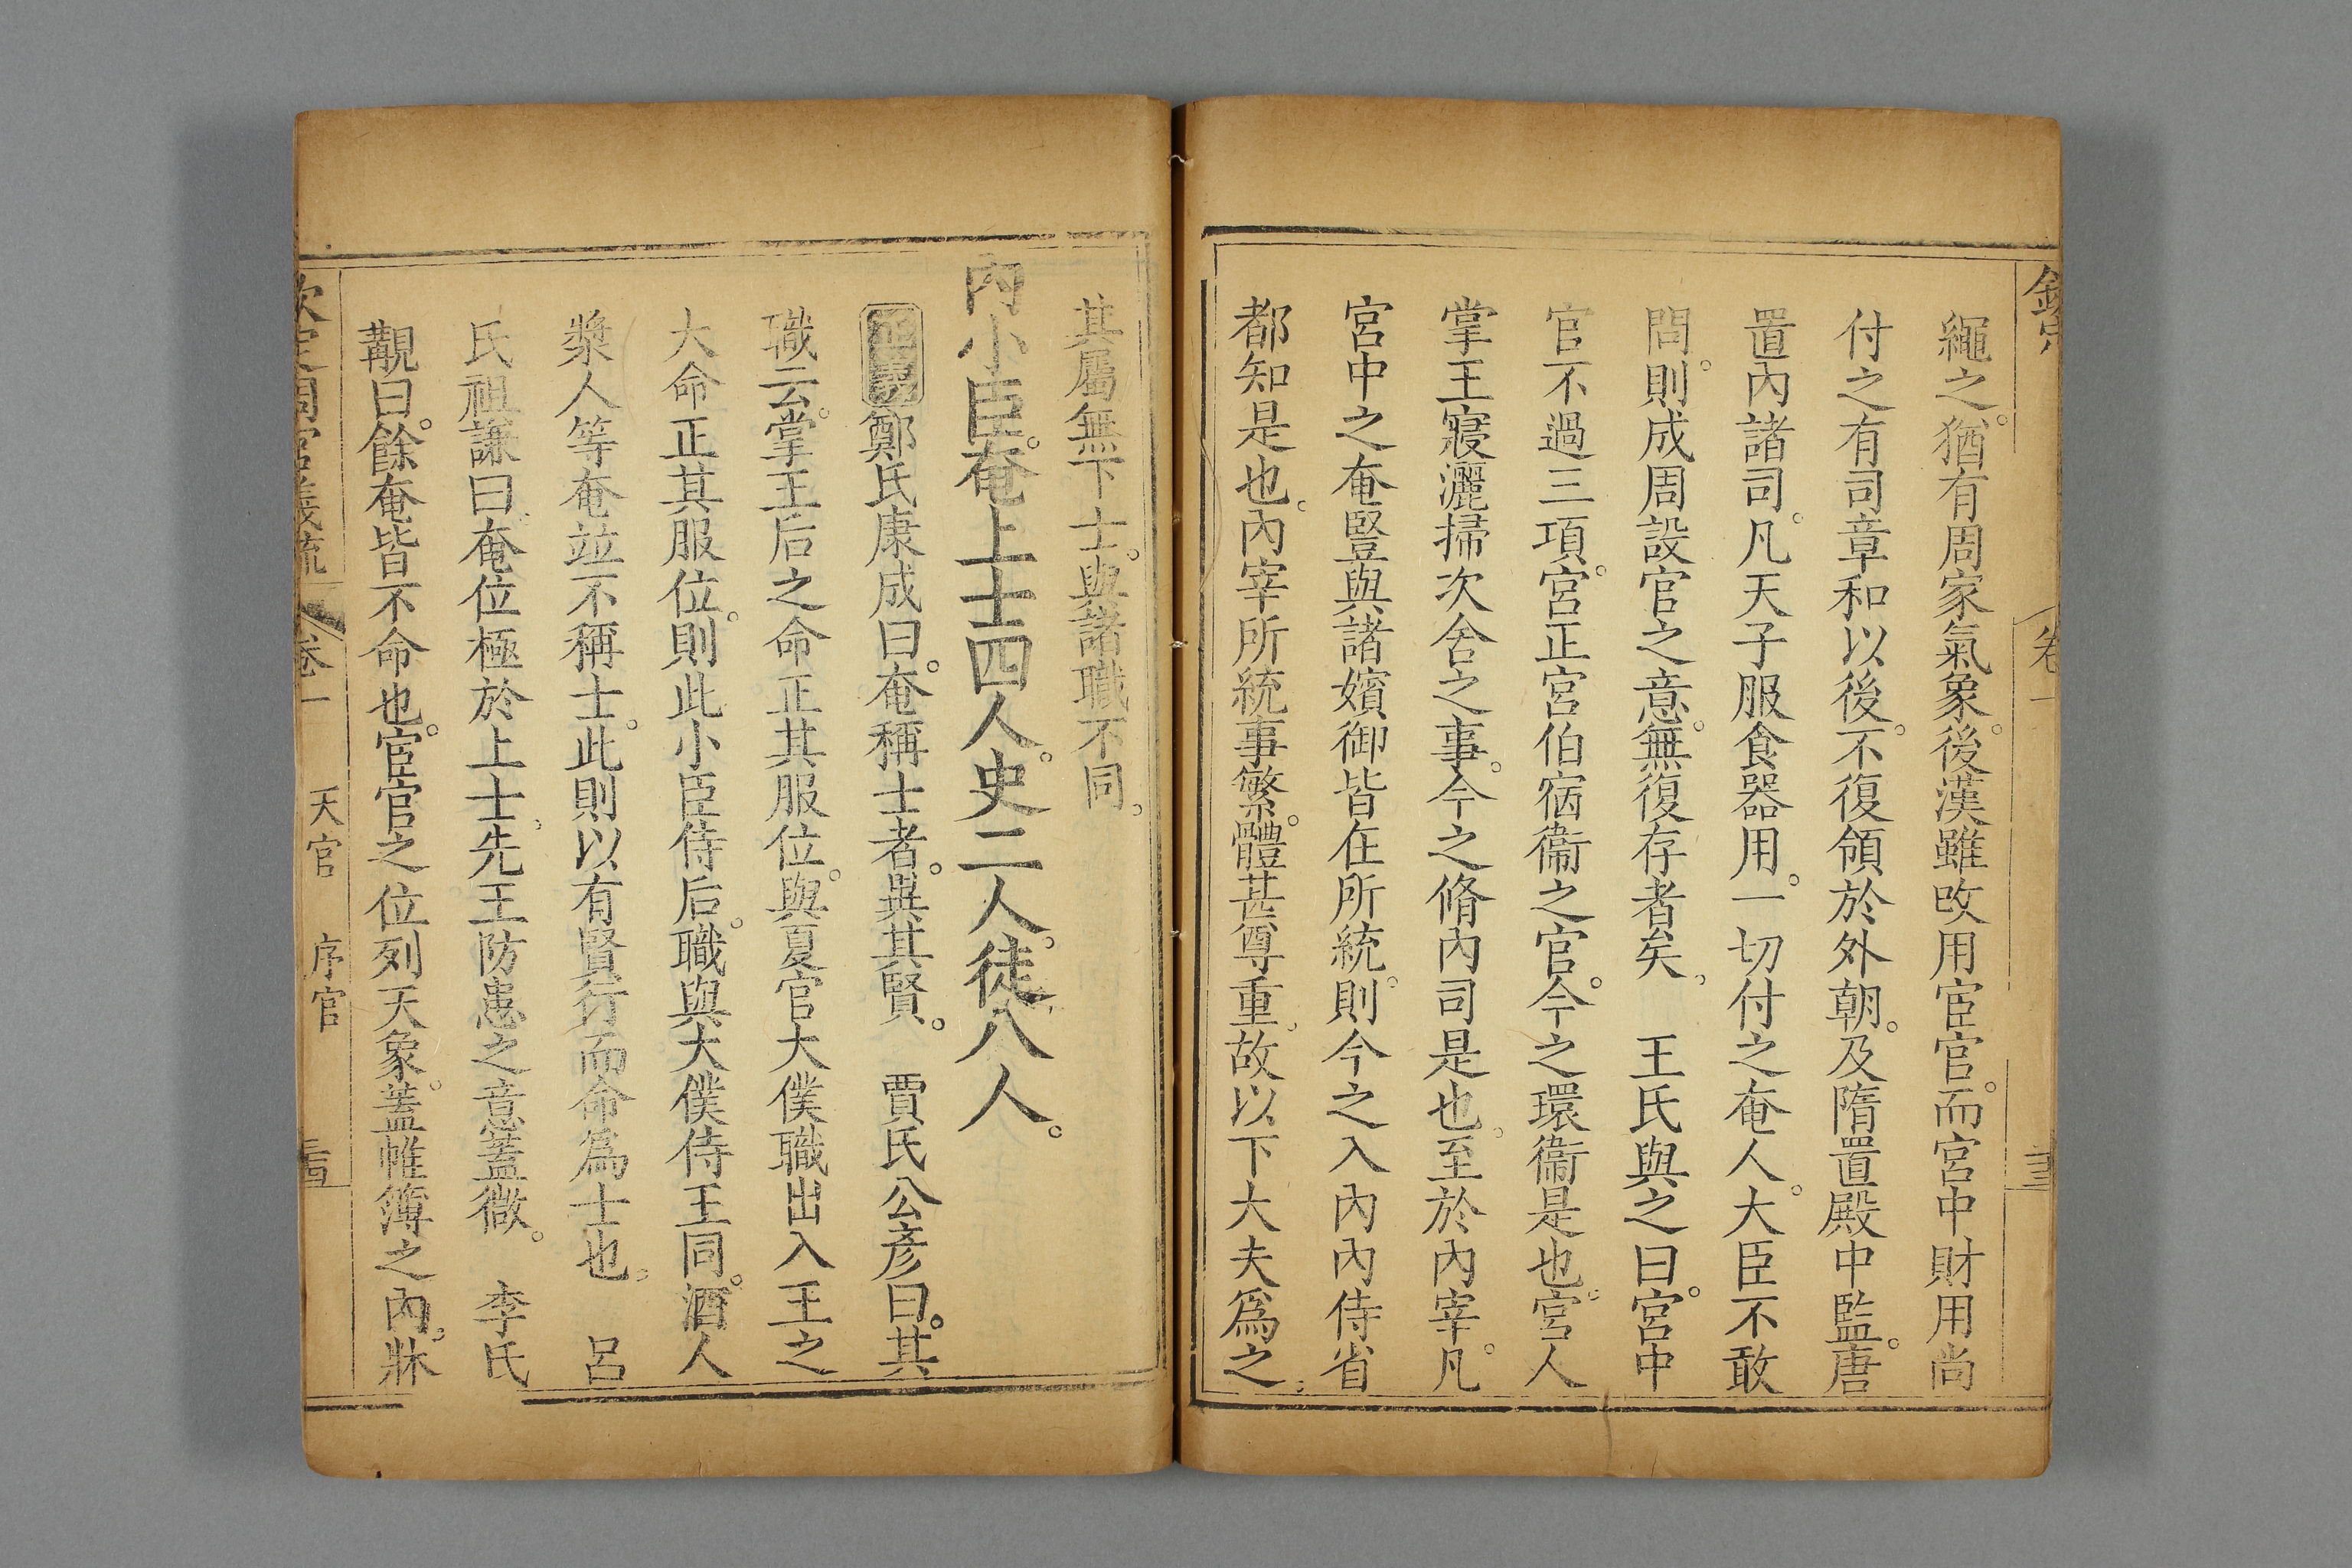 繩之。猶有周家氣象。後漢雖改用宦官。而宮中財用尚
付之有司章和以後。不復領於外朝。及隋置殿中監。唐
置內諸司。凡天子服食器用。一切付之奄人。大臣不敢
問。則成周設官之意。無復存者矣。　王氏與之曰。宮中
官不過三項。宮正宮伯宿衞之官。今之環衞是也。宮人
掌王寢灑掃次舍之事。今之脩內司是也。至於內宰。凡
宮中之奄豎與諸嬪御皆在所統。則今之入內內侍省
都知是也。內宰所統事繁。體甚尊重。故以下大夫爲之。
其屬無下士。與諸職不同。
內小臣。奄上士四人。史二人。徒八人。
正義鄭氏康成曰。奄稱士者。異其賢。　賈氏公彥曰。其
職云。掌王后之命正其服位。與夏官大僕職出入王之
大命正其服位。則此小臣侍后。職與大僕侍王同。酒人
漿人等奄並不稱士。此則以有賢行而命爲士也。　呂
氏祖謙曰。奄位極於上士。先王防患之意蓋微。　李氏
覯曰。餘奄皆不命也。宦官之位列天象。蓋帷簿之內。牀
欽定周官義疏　卷一　天官　序官